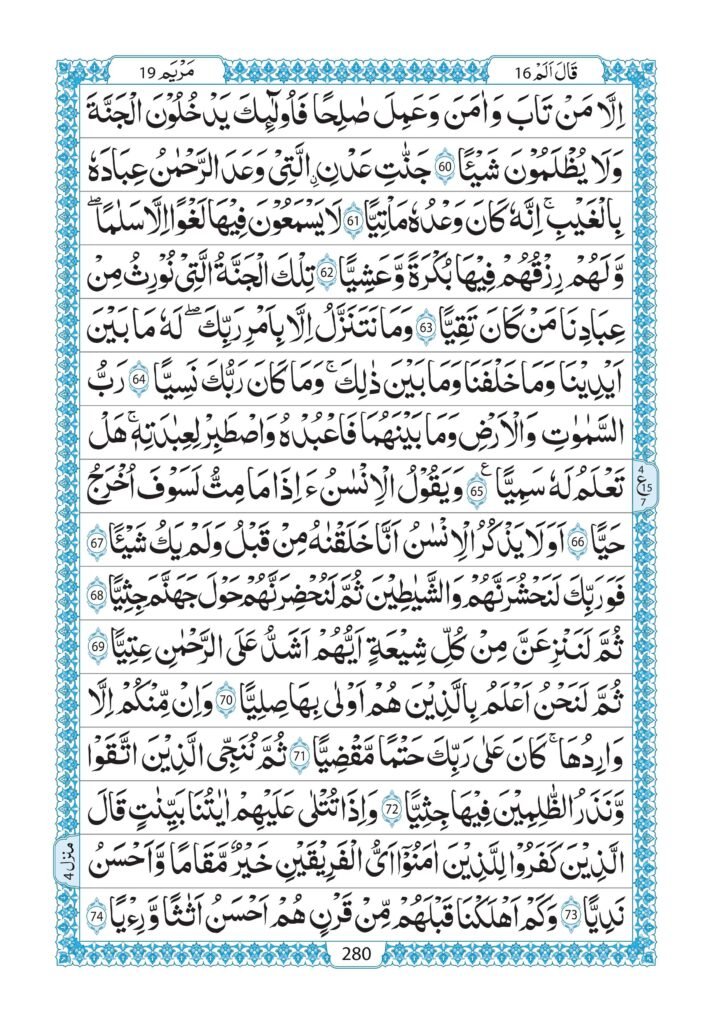 قَالَ اَلَمْ 16
مَرْيَم 19
اِلَّا مَنْ تَابَ وَاٰمَنَ وَعَمِلَ صٰلِحًا فَاُولٰٓئِكَ يَدْخُلُوْنَ الْجَنَّةَ
وَلَا يُظْلَمُوْنَ شَيْـًٔا 60 جَنّٰتِ عَدْنِ ۨالَّتِيْ وَعَدَ الرَّحْمٰنُ عِبَادَهٗ
بِالْغَيْبِ ۚ اِنَّهٗ كَانَ وَعْدُهٗ مَاْتِيًّا 61 لَا يَسْمَعُوْنَ فِيْهَا لَغْوًا اِلَّا سَلٰمًا ۖ
وَّلَهُمْ رِزْقُهُمْ فِيْهَا بُكْرَةً وَّعَشِيًّا 62 تِلْكَ الْجَنَّةُ الَّتِيْ نُوْرِثُ مِنْ
عِبَادِنَا مَنْ كَانَ تَقِيًّا 63 وَمَا نَتَنَزَّلُ اِلَّا بِاَمْرِ رَبِّكَ ۖ لَهٗ مَا بَيْنَ
اَيْدِيْنَا وَمَا خَلْفَنَا وَمَا بَيْنَ ذٰلِكَ ۚ وَمَا كَانَ رَبُّكَ نَسِيًّا 64 رَبُّ
السَّمٰوٰتِ وَالْاَرْضِ وَمَا بَيْنَهُمَا فَاعْبُدْهُ وَاصْطَبِرْ لِعِبَادَتِهٖ ۚ هَلْ
تَعْلَمُ لَهٗ سَمِيًّا ع 65 وَيَقُوْلُ الْاِنْسٰنُ ءَاِذَا مَا مِتُّ لَسَوْفَ اُخْرَجُ
4 ع 15 7
حَيًّا 66 اَوَلَا يَذْكُرُ الْاِنْسٰنُ اَنَّا خَلَقْنٰهُ مِنْ قَبْلُ وَلَمْ يَكُ شَيْـًٔا 67
فَوَرَبِّكَ لَنَحْشُرَنَّهُمْ وَالشَّيٰطِيْنَ ثُمَّ لَنُحْضِرَنَّهُمْ حَوْلَ جَهَنَّمَ جِثِيًّا 68
ثُمَّ لَنَنْزِعَنَّ مِنْ كُلِّ شِيْعَةٍ اَيُّهُمْ اَشَدُّ عَلَى الرَّحْمٰنِ عِتِيًّا 69
ثُمَّ لَنَحْنُ اَعْلَمُ بِالَّذِيْنَ هُمْ اَوْلٰى بِهَا صِلِيًّا 70 وَاِنْ مِّنْكُمْ اِلَّا
وَارِدُهَا ۚ كَانَ عَلٰى رَبِّكَ حَتْمًا مَّقْضِيًّا 71 ثُمَّ نُنَجِّي الَّذِيْنَ اتَّقَوْا
وَّنَذَرُ الظّٰلِمِيْنَ فِيْهَا جِثِيًّا 72 وَاِذَا تُتْلٰى عَلَيْهِمْ اٰيٰتُنَا بَيِّنٰتٍ قَالَ
الَّذِيْنَ كَفَرُوْا لِلَّذِيْنَ اٰمَنُوْٓا اَيُّ الْفَرِيْقَيْنِ خَيْرٌ مَّقَامًا وَّاَحْسَنُ
منزل 4
نَدِيًّا 73 وَكَمْ اَهْلَكْنَا قَبْلَهُمْ مِّنْ قَرْنٍ هُمْ اَحْسَنُ اَثٰثًا وَّرِءْيًا 74
280